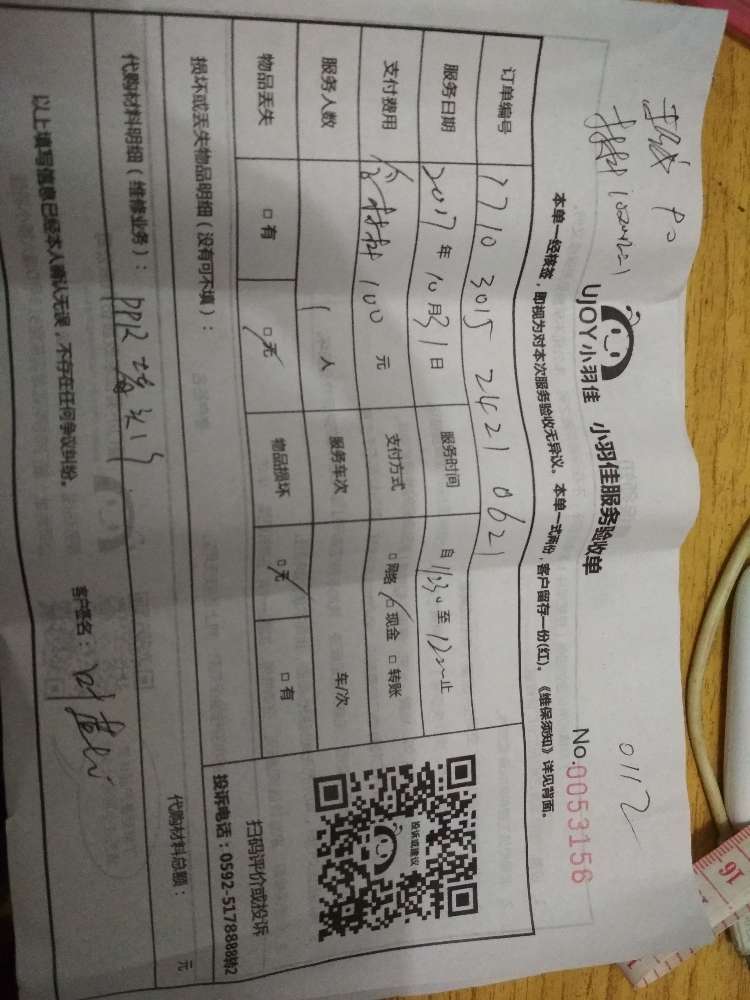 0112
UJOY小羽佳 小羽佳服务验收单
No.0053156
本单一经核签，即视为对本次服务验收无异议。本单一式两份，客户留存一份(红)。《维保须知》详见背面。
订单编号 7710 3015 2421 0621
服务日期 2017年10月31日 服务时间 自 11:30 至 12:00 止
支付费用 含材料 100 元 支付方式 □网络 □现金 □转账
服务人数 1 人 服务车次 车/次
物品丢失 □有 □无 物品损坏 □无 □有
损坏或丢失物品明细（没有可不填）：
代购材料明细（维修业务）： PPR 堵头1个
代购材料总额： 元
以上填写信息已经本人确认无误，不存在任何争议纠纷。 客户签名：
投诉或建议
扫码评价或投诉
投诉电话：0592-5178888转2
16